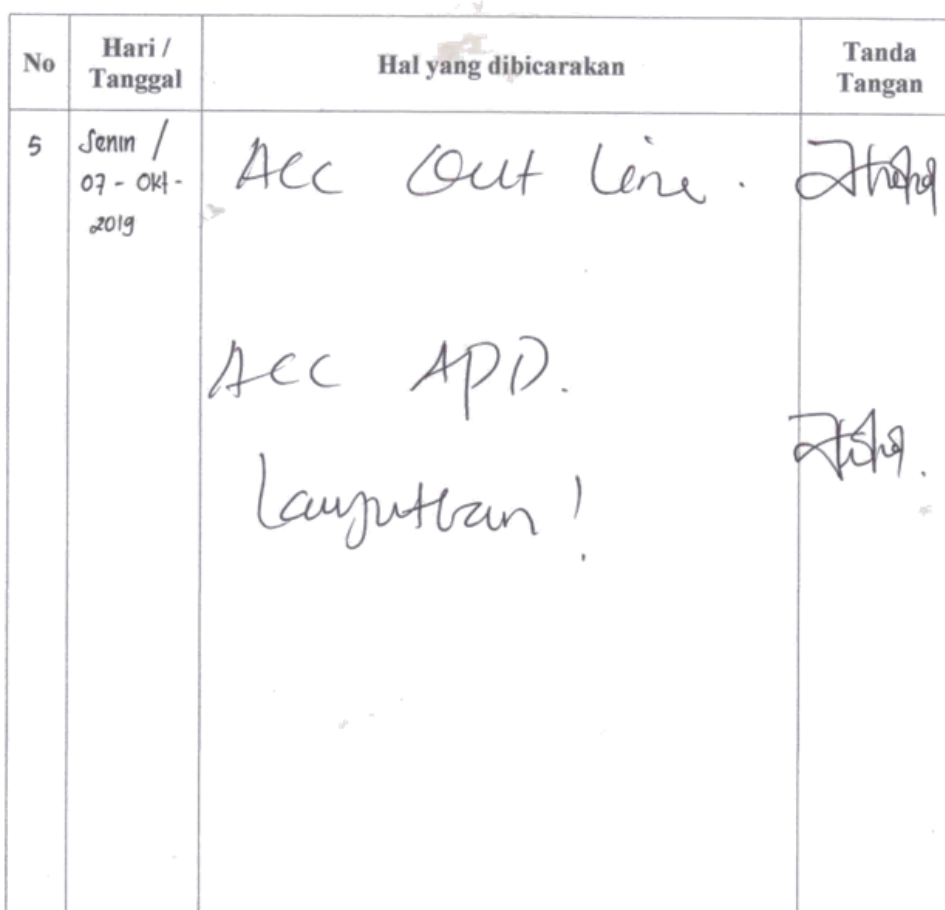 No
Hari / Tanggal
Hal yang dibicarakan
Tanda Tangan
5
Senin /
07 - Okt -
2019
Acc Out Line.
Acc APD.
Lanjutkan!